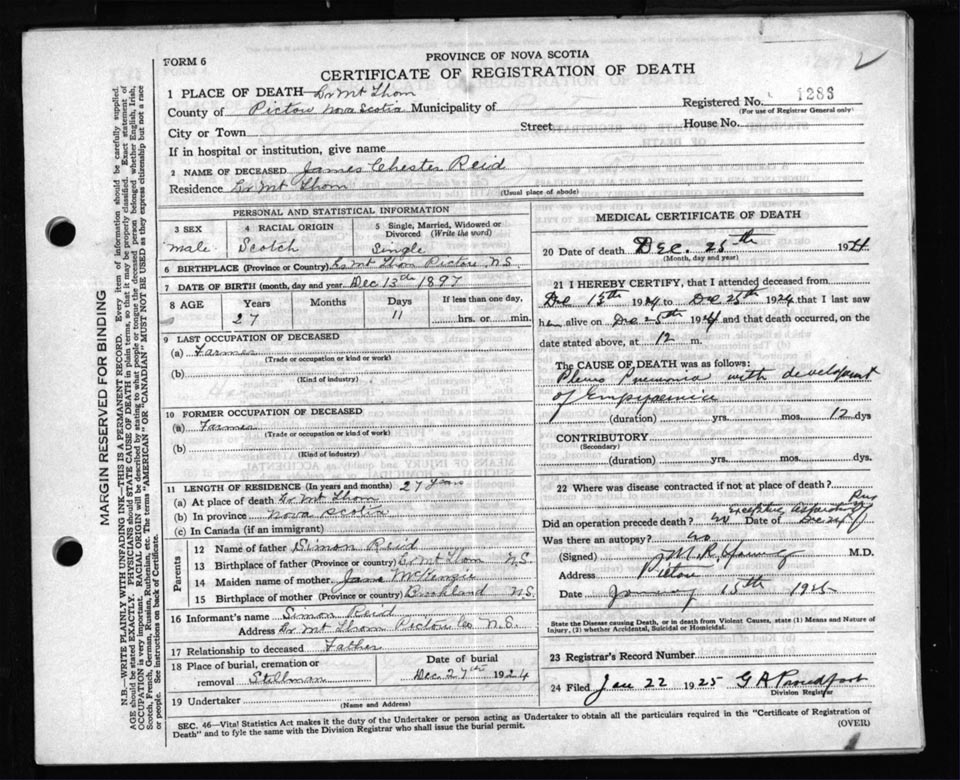 FORM 6
PROVINCE OF NOVA SCOTIA
CERTIFICATE OF REGISTRATION OF DEATH
1 PLACE OF DEATH— Lr Mt Thom
County of Pictou Nova Scotia Municipality of
Registered No. 1283
(For use of Registrar General only)
City or Town Street House No.
If in hospital or institution, give name
2 NAME OF DECEASED James Chester Reid
Residence Lr Mt Thom
(Usual place of abode)
PERSONAL AND STATISTICAL INFORMATION
3 SEX 4 RACIAL ORIGIN 5 Single, Married, Widowed or Divorced (Write the word)
male Scotch Single
6 BIRTHPLACE (Province or Country) Lr Mt Thom Pictou N.S.
7 DATE OF BIRTH (month, day and year) Dec 13th 1897
8 AGE Years Months Days If less than one day,
27 11 hrs. or min.
9 LAST OCCUPATION OF DECEASED
(a) Farmer
(Trade or occupation or kind of work)
(b)
(Kind of industry)
10 FORMER OCCUPATION OF DECEASED
(a) Farmer
(Trade or occupation or kind of work)
(b)
(Kind of industry)
11 LENGTH OF RESIDENCE (In years and months) 27 years
(a) At place of death Lr Mt Thom
(b) In province Nova Scotia
(c) In Canada (if an immigrant)
Parents
12 Name of father Simon Reid
13 Birthplace of father (Province or Country) Lr Mt Thom N.S.
14 Maiden name of mother Jane McKenzie
15 Birthplace of mother (Province or country) Brookland N.S.
16 Informant's name Simon Reid
Address Lr Mt Thom Pictou Co N.S.
17 Relationship to deceased Father
18 Place of burial, cremation or removal Stillman
Date of burial
Dec 27th 1924
19 Undertaker
(Name and Address)
MEDICAL CERTIFICATE OF DEATH
20 Date of death Dec. 25th 1924
(Month, day and year)
21 I HEREBY CERTIFY, that I attended deceased from
Dec 15th 1924 to Dec 25th 1924 that I last saw
him alive on Dec 25th 1924 and that death occurred, on
date stated above, at 12 m.
The CAUSE OF DEATH was as follows:
Pleuro Pneumonia with development
of Empyaemia
(duration) yrs. mos. 12 dys
CONTRIBUTORY
(Secondary)
(duration) yrs. mos. dys.
22 Where was disease contracted if not at place of death?
Did an operation precede death? no excepting aspirating Date of Dec 24
Was there an autopsy? no
(Signed) M.D.
Address Pictou
Date January 15th 1925
State the Disease causing Death, or in death from Violent Causes, state (1) Means and Nature of
Injury, (2) whether Accidental, Suicidal or Homicidal.
23 Registrar's Record Number
24 Filed Jan 22 1925 G A Proudfoot
Division Registrar
SEC. 46—Vital Statistics Act makes it the duty of the Undertaker or person acting as Undertaker to obtain all the particulars required in the "Certificate of Registration of
Death" and to fyle the same with the Division Registrar who shall issue the burial permit.
(OVER)
MARGIN RESERVED FOR BINDING
N.B.—WRITE PLAINLY WITH UNFADING INK—THIS IS A PERMANENT RECORD. Every item of information should be carefully supplied.
AGE should be stated EXACTLY. PHYSICIANS should STATE CAUSE OF DEATH in plain terms, so that it may be properly classified. Exact statement of
OCCUPATION is very important. RACIAL ORIGIN will be described by stating to what people or tongue the deceased person belonged whether English, Irish,
Scotch, French, German, Russian, Ruthenian, etc. The terms "AMERICAN" OR "CANADIAN" MUST NOT BE USED as they express citizenship but not a race
or people. See instructions on back of Certificate.